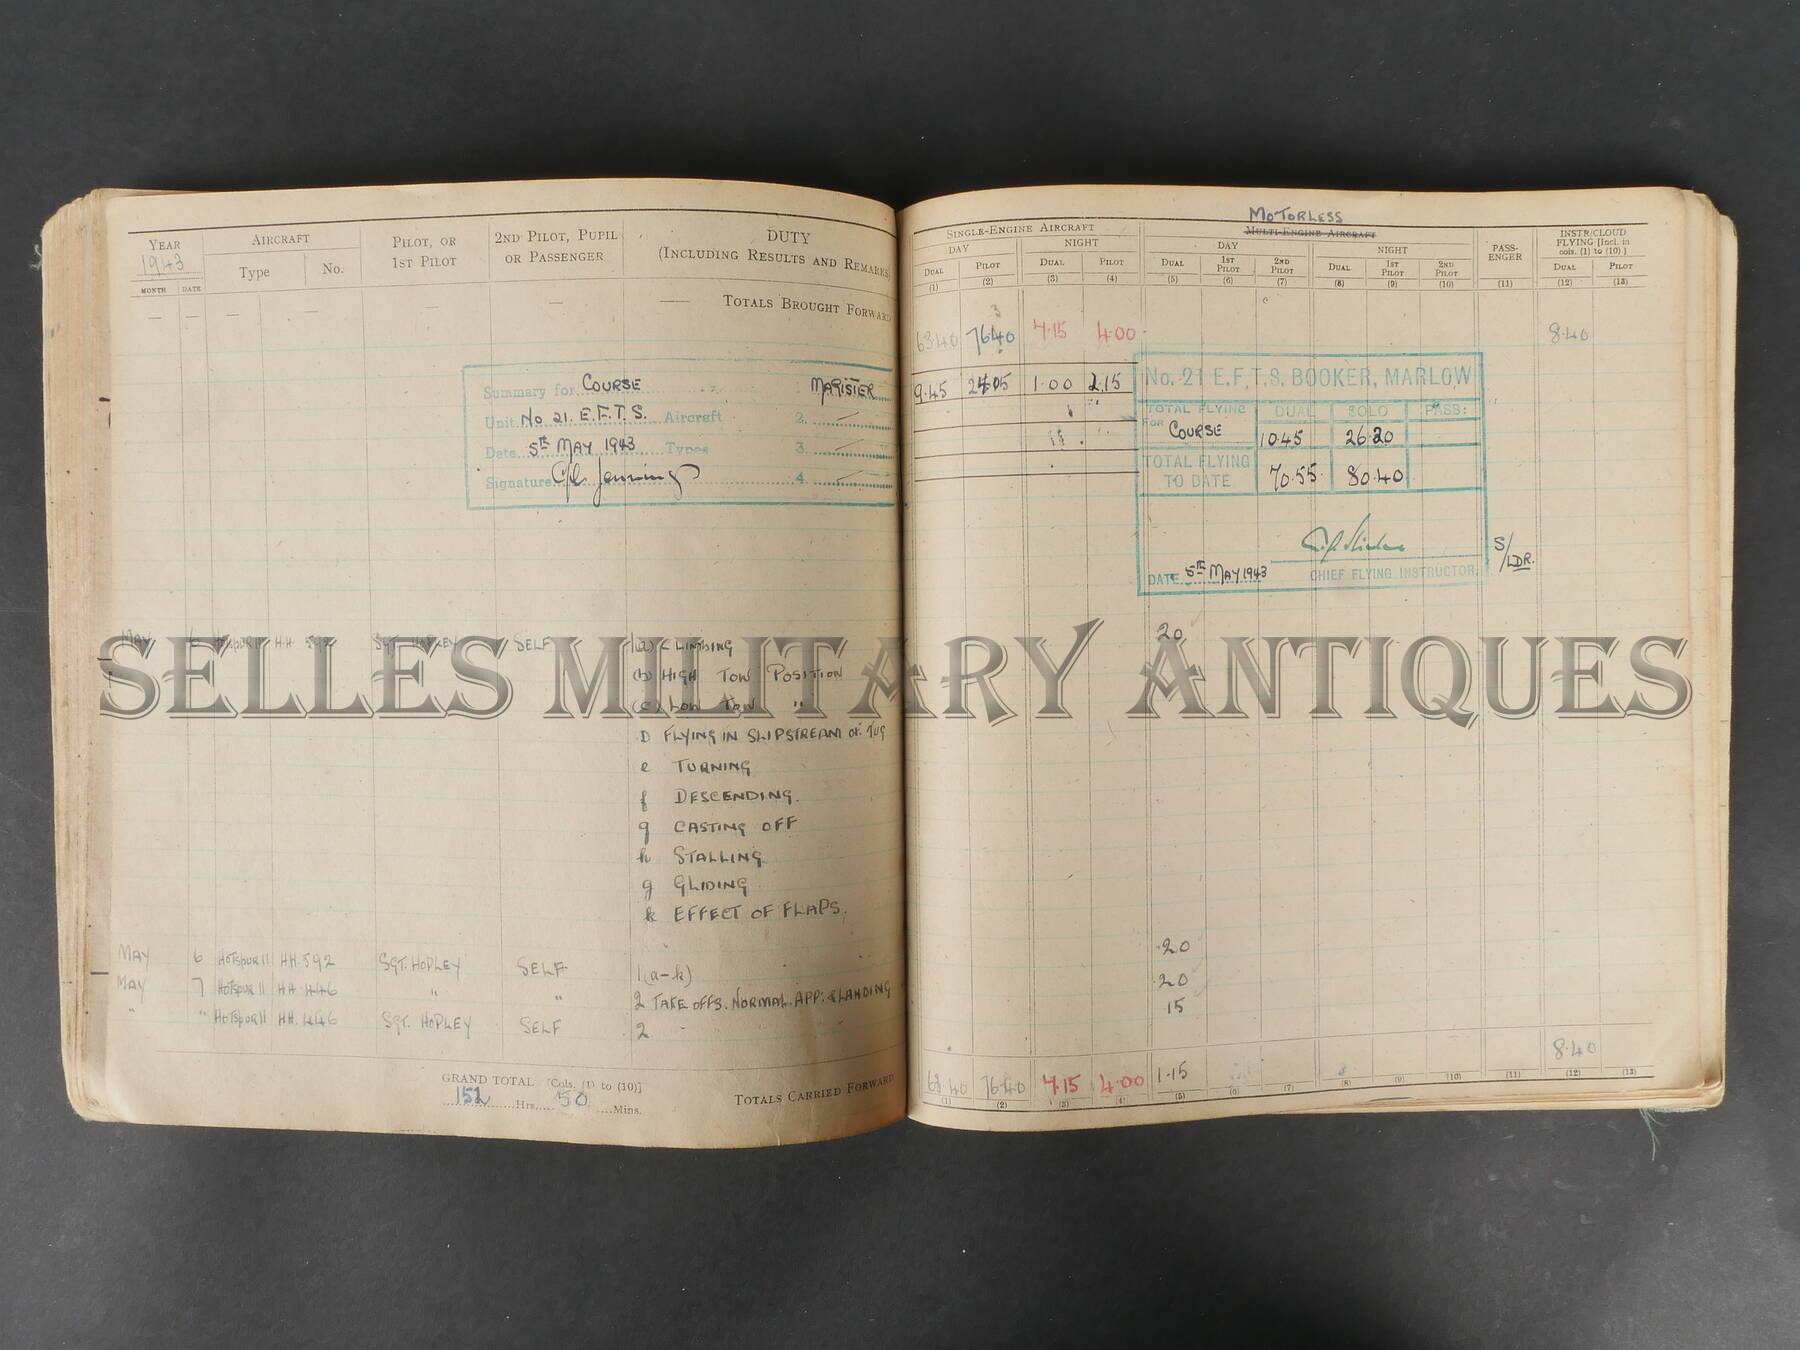 YEAR AIRCRAFT PILOT, OR 2ND PILOT, PUPIL DUTY
1943 Type No. 1ST PILOT OR PASSENGER (INCLUDING RESULTS AND REMARKS)
MONTH DATE
— — — — — — — TOTALS BROUGHT FORWARD
Summary for COURSE MAGISTER
Unit No 21. E.F.T.S. Aircraft 2.
Date 5TH MAY 1943 Types 3.
Signature 4.
MAY 6 HOTSPUR II HH 592 SGT. HOPLEY SELF 1(a) CLIMBING
(b) HIGH TOW POSITION
(c) LOW TOW "
D FLYING IN SLIPSTREAM OF TUG
e TURNING
f DESCENDING.
g CASTING OFF
h STALLING
g GLIDING
k EFFECT OF FLAPS.
MAY 6 HOTSPUR II HH.592 SGT. HOPLEY SELF 1(a-k)
MAY 7 HOTSPUR II HH.446 " " 2 TAKE OFFS. NORMAL. APP: & LANDING
" " HOTSPUR II HH.446 SGT. HOPLEY SELF 2
GRAND TOTAL [Cols. (1) to (10)]
152 Hrs. 50 Mins. TOTALS CARRIED FORWARD
MOTORLESS
SINGLE-ENGINE AIRCRAFT MULTI-ENGINE AIRCRAFT PASS-ENGER INSTR/CLOUD FLYING [Incl. in cols. (1) to (10)]
DAY NIGHT DAY NIGHT
DUAL PILOT DUAL PILOT DUAL 1ST PILOT 2ND PILOT DUAL 1ST PILOT 2ND PILOT DUAL PILOT
(1) (2) (3) (4) (5) (6) (7) (8) (9) (10) (11) (12) (13)
63.40 76.40 7.15 4.00 8.40
9.45 24.05 1.00 2.15
No. 21 E.F.T.S. BOOKER, MARLOW
TOTAL FLYING DUAL SOLO PASS:
FOR COURSE 10.45 26.20
TOTAL FLYING TO DATE 70.55 80.40
S/LDR.
DATE 5TH MAY 1943 CHIEF FLYING INSTRUCTOR
20
.20
20
15
8.40
63.40 76.40 7.15 4.00 1.15
(1) (2) (3) (4) (5) (6) (7) (8) (9) (10) (11) (12) (13)
SELLES MILITARY ANTIQUES